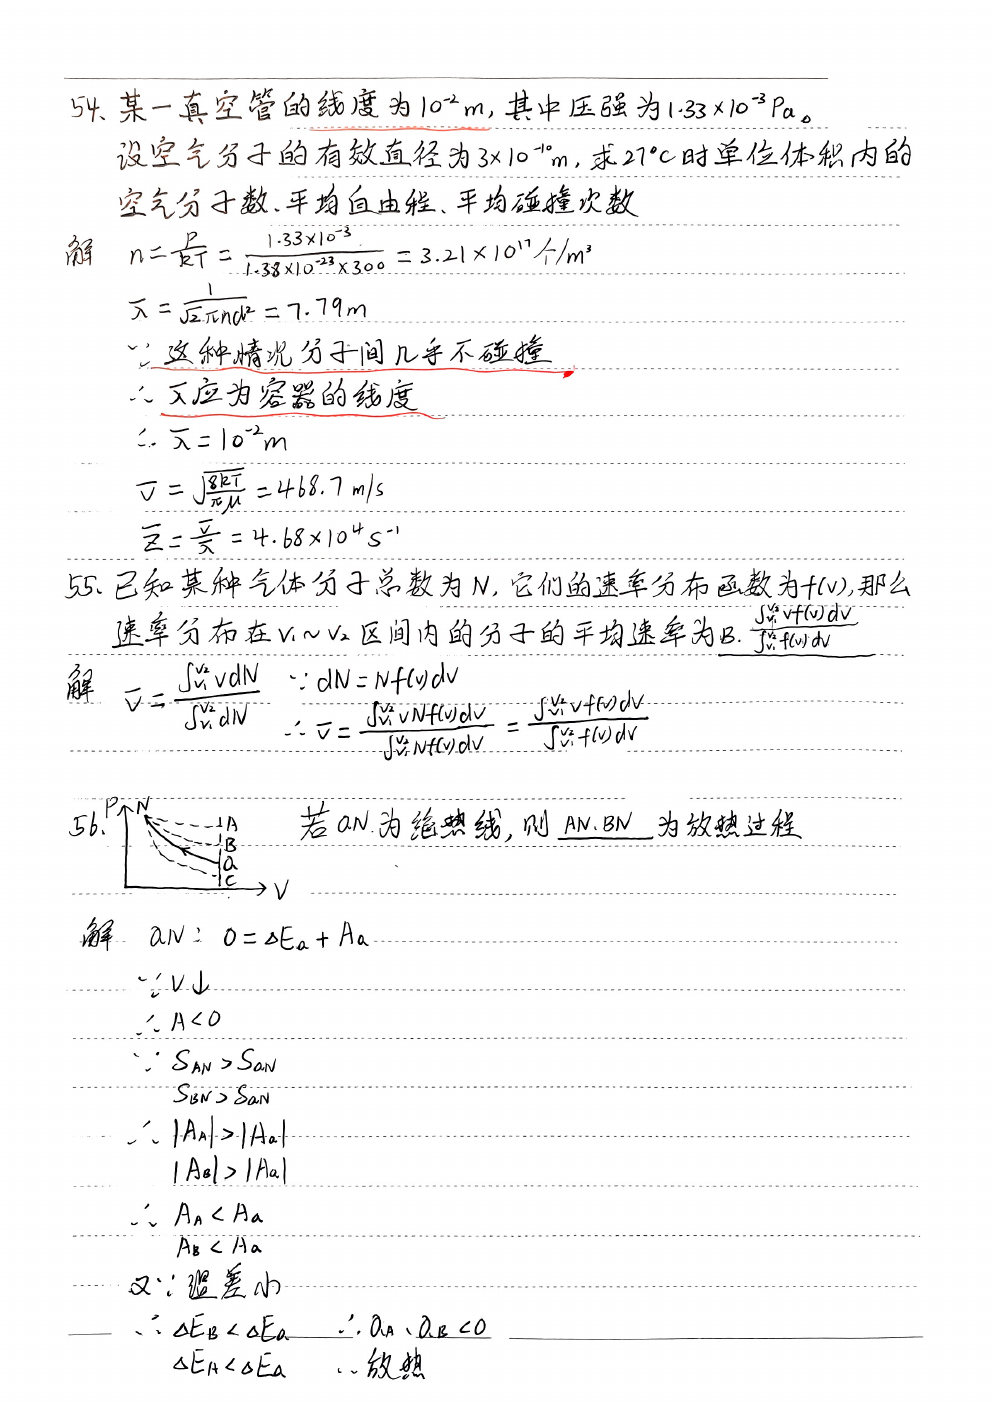 54. 某一真空管的线度为10⁻²m, 其中压强为1.33×10⁻³Pa。
设空气分子的有效直径为3×10⁻¹⁰m, 求27°C时单位体积内的
空气分子数、平均自由程、平均碰撞次数
解 n=P/kT=1.33×10⁻³/1.38×10⁻²³×300=3.21×10¹⁷个/m³
λ̄=1/√2πnd²=7.79m
∵ 这种情况分子间几乎不碰撞
∴ λ̄应为容器的线度
∴ λ̄=10⁻²m
v̄=√8RT/πμ=468.7m/s
Z̄=v̄/λ̄=4.68×10⁴s⁻¹
55. 已知某种气体分子总数为N, 它们的速率分布函数为f(v), 那么
速率分布在v₁~v₂区间内的分子的平均速率为B. ∫ᵥ₁ᵛ²vf(v)dv/∫ᵥ₁ᵛ²f(v)dv
解 v̄=∫ᵥ₁ᵛ²vdN/∫ᵥ₁ᵛ²dN ∵dN=Nf(v)dv
∴v̄=∫ᵥ₁ᵛ²vNf(v)dv/∫ᵥ₁ᵛ²Nf(v)dv=∫ᵥ₁ᵛ²vf(v)dv/∫ᵥ₁ᵛ²f(v)dv
56. 若aN为绝热线, 则 AN、BN 为放热过程
P
N
A
B
a
C
V
解 aN: 0=ΔEa+Aa
∵V↓
∴A<0
∵ S_AN>S_aN
S_BN>S_aN
∴ |A_A|>|Aa|
|A_B|>|Aa|
∴ A_A<Aa
A_B<Aa
又∵温差小
∴ΔE_B<ΔEa ∴Q_A、Q_B<0
ΔE_A<ΔEa ∴放热